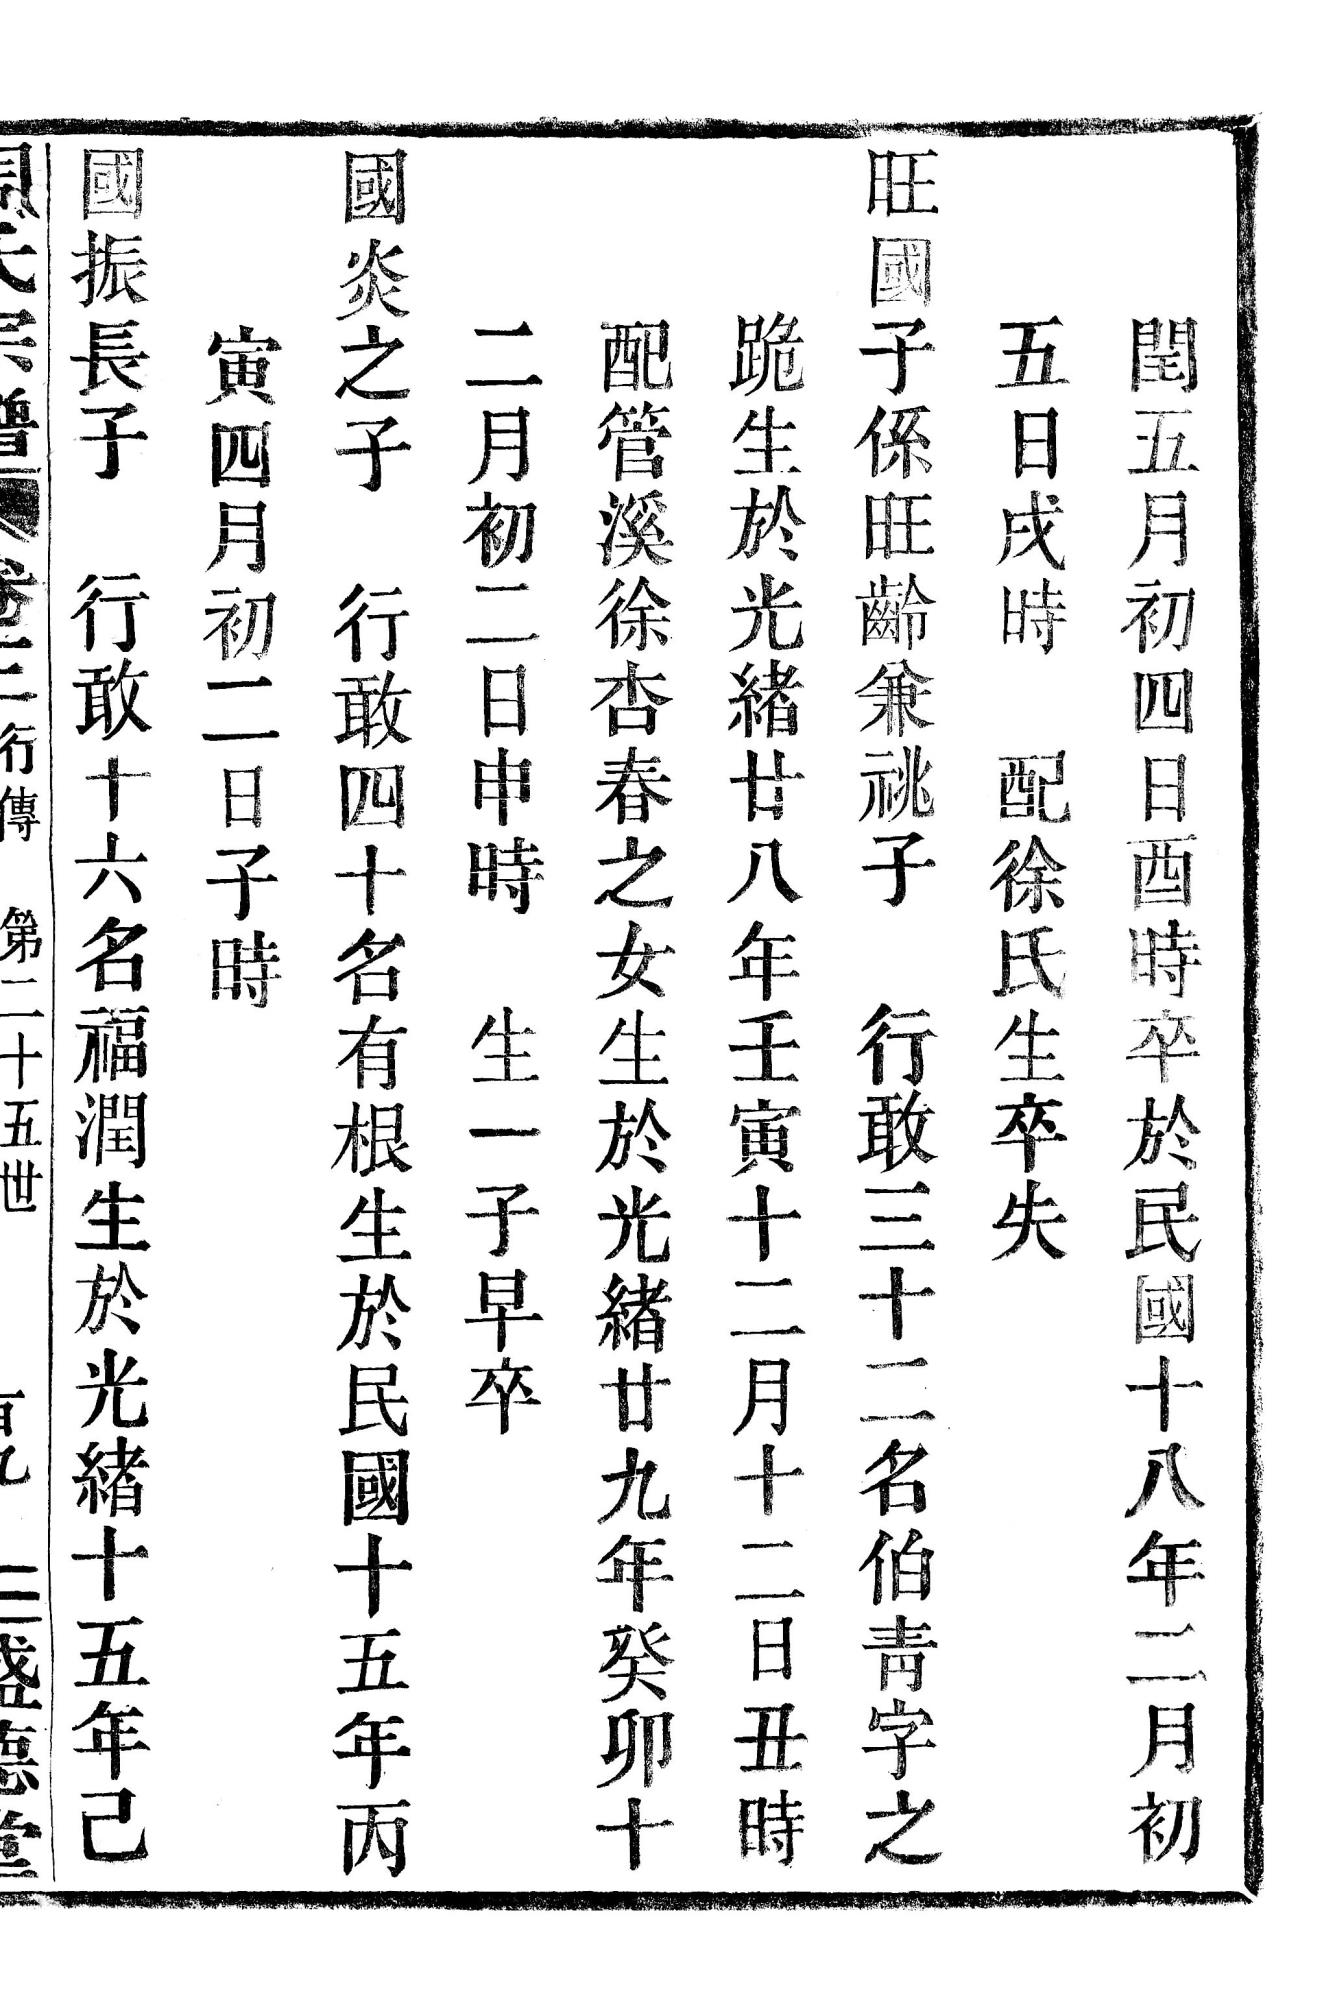 閏五月初四日酉時卒於民國十八年二月初
五日戌時　配徐氏生卒失
旺國子係旺齡兼祧子　行敢三十二名伯青字之
跪生於光緒廿八年壬寅十二月十二日丑時
配管溪徐杏春之女生於光緒廿九年癸卯十
二月初二日申時　生一子早卒
國炎之子　行敢四十名有根生於民國十五年丙
寅四月初二日子時
國振長子　行敢十六名福潤生於光緒十五年己
周氏宗譜　卷十二行傳　第二十五世　百九　三盛德堂